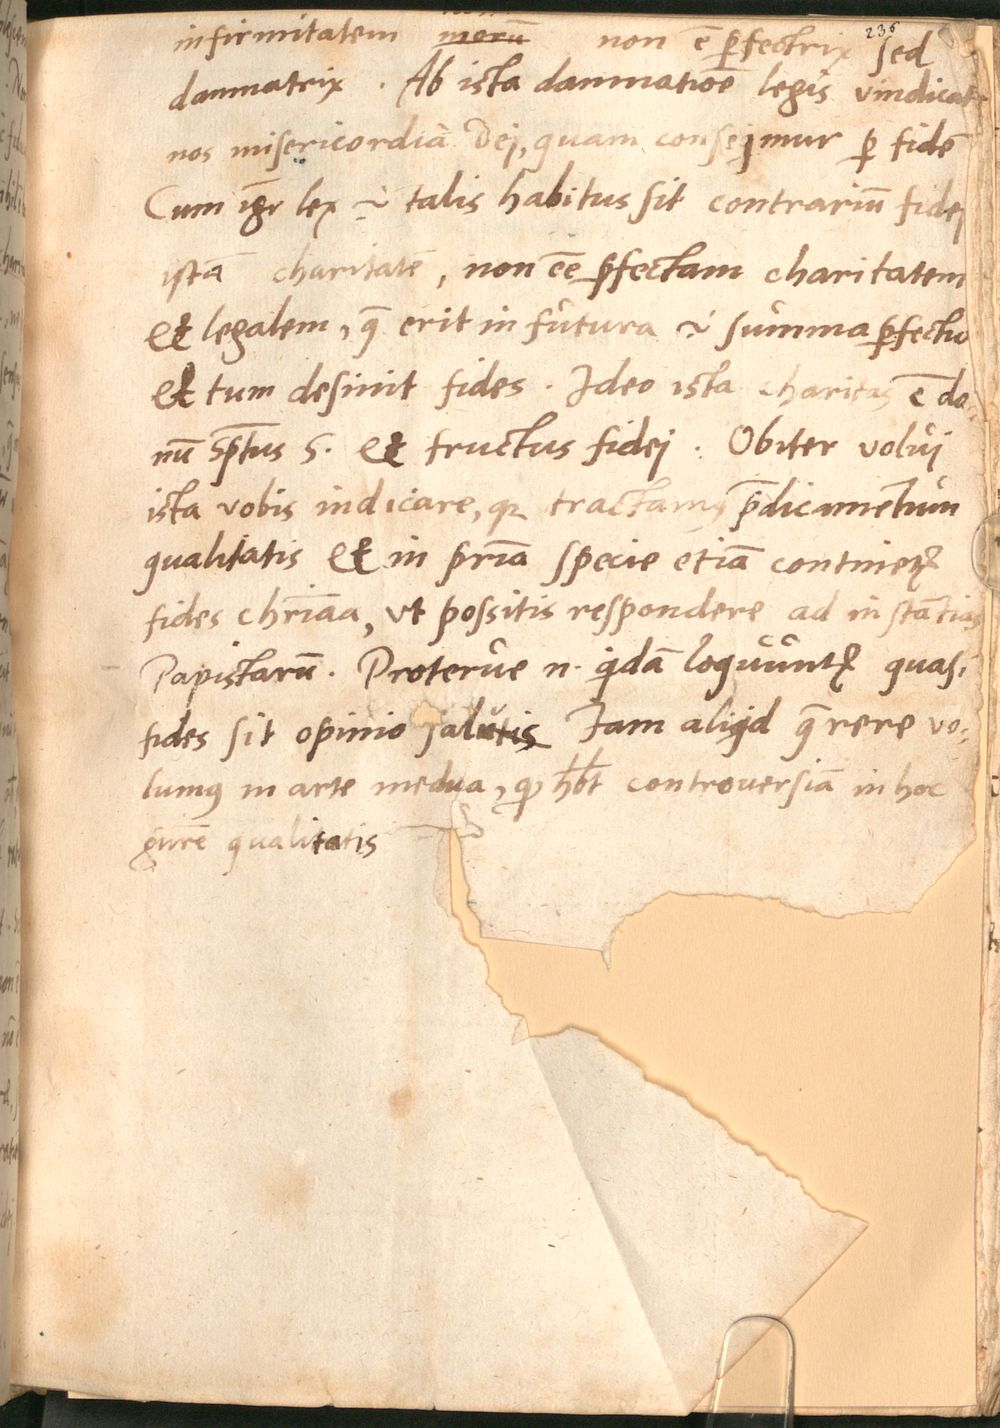 236
infirmitatem merū non ē ꝑfectrix sed
damnatrix . Ab ista damnatiōe legis vindicat
nos misericordia Dej, quam conseqmur ꝑ fidē
Cum igr̄ lex talis habitus sit contrariū fidej
istā charitatē, non eē ꝑfectam charitatem
& legalem, q̄ erit in futura summa ꝑfectio
& tum desinit fides . Ideo ista charitas ē do-
nū sp̄tus S. & fructus fidej . Obiter voluj
ista vobis indicare, qꝫ tractamꝰ p̄dicamētum
qualitatis & in pr̄ia specie etiā continetꝛ
fides chr̄iāa, vt possitis respondere ad instātias
Papistarū . Proterve n. qdā loquūntꝛ quasi
fides sit opinio salutis Iam aliqd q̄rere vo-
lumꝰ in arte medica, qꝫ hb̄t controuersiā in hoc
gn̄re qualitatis